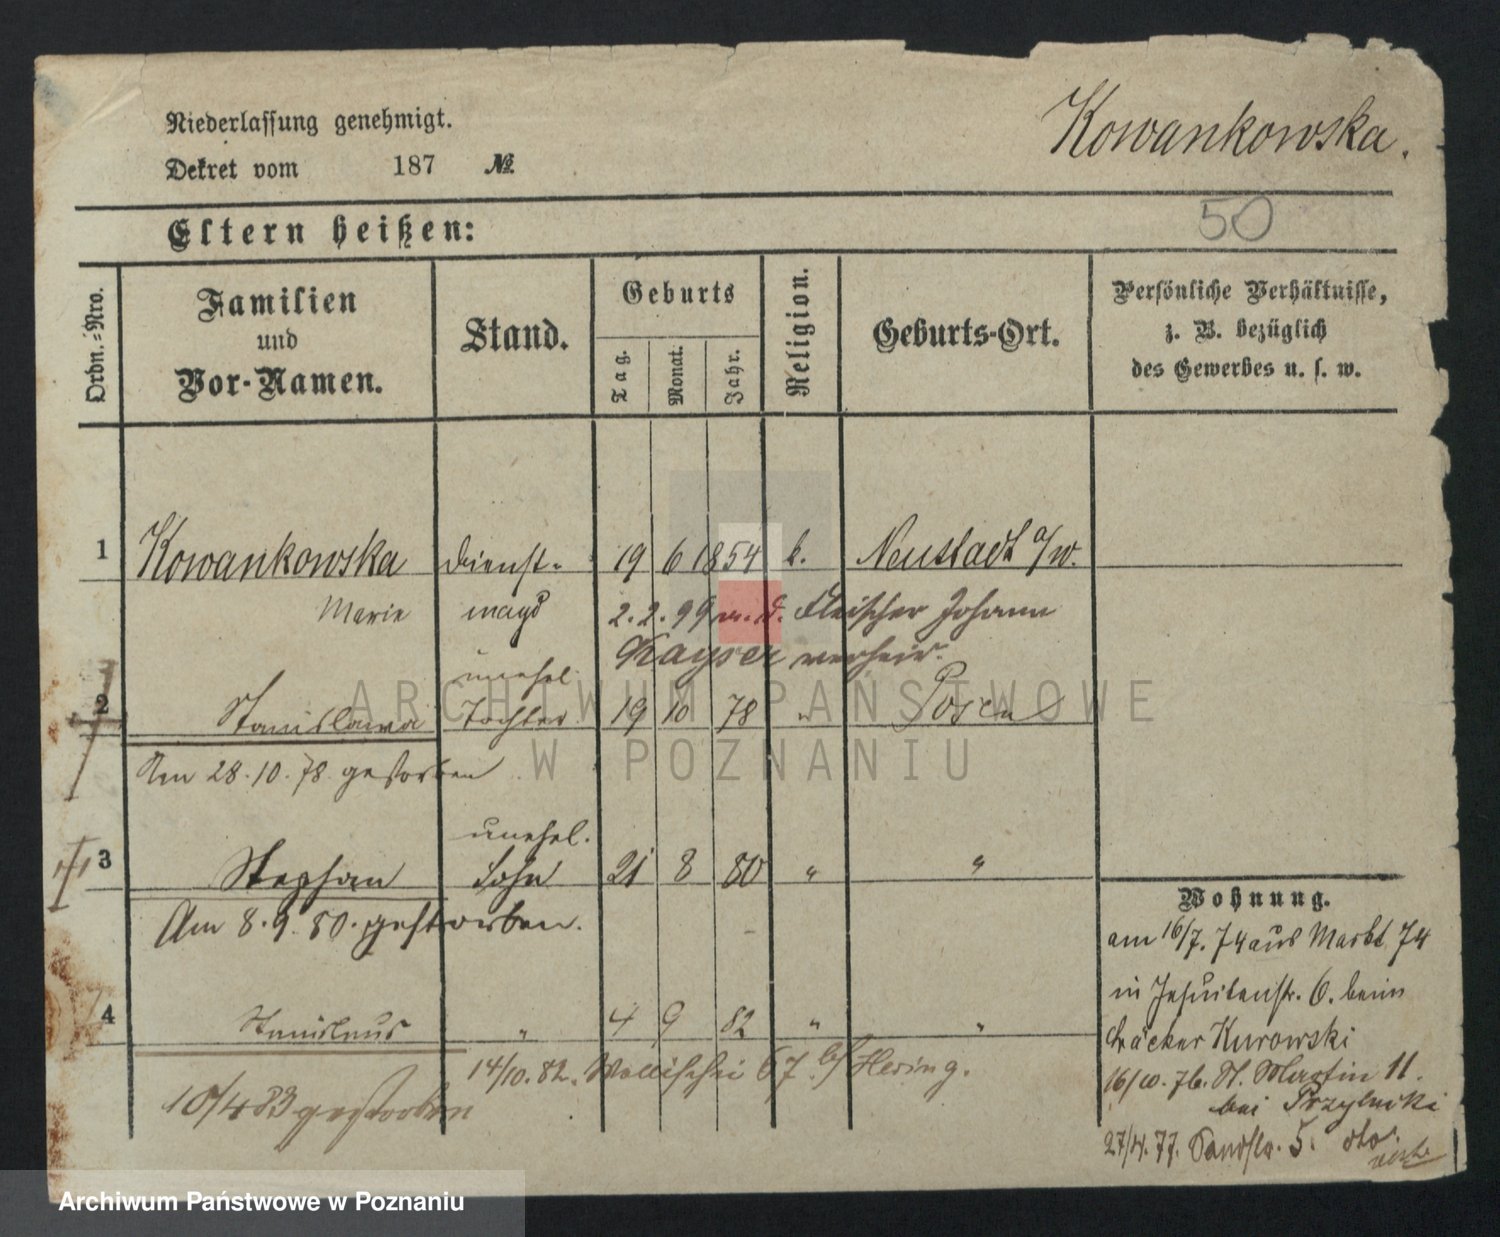 Niederlassung genehmigt.
Dekret vom 187 №
Kowankowska.
50
Eltern heißen:
Ordn.-Nro.
Familien
und
Vor-Namen.
Stand.
Geburts
Tag.
Monat.
Jahr.
Religion.
Geburts-Ort.
Persönliche Verhältnisse,
z. B. bezüglich
des Gewerbes u. s. w.
1 Kowankowska Dienst- 19 6 1854 k. Neustadt a/w.
Marie magd 2.2.99 m. d. Fleischer Johann
Kayser verheir.
unehel.
2 Stanislawa Tochter 19 10 78 " Posen
Am 28.10.78 gestorben
unehel.
3 Stephan Sohn 21 8 80 " "
Am 8.9.80. gestorben.
4 Stanislaus " 4 9 82 " "
14/10.82. Wallischei 67 b/ Hering.
10/4 83 gestorben
Wohnung.
am 16/7. 74 aus Markt 74
in Jesuitenstr. 6. beim
Bäcker Kurowski
16/10. 76. St. Martin 11.
bei
27/4. 77. 5.
ARCHIWUM PAŃSTWOWE
W POZNANIU
Archiwum Państwowe w Poznaniu